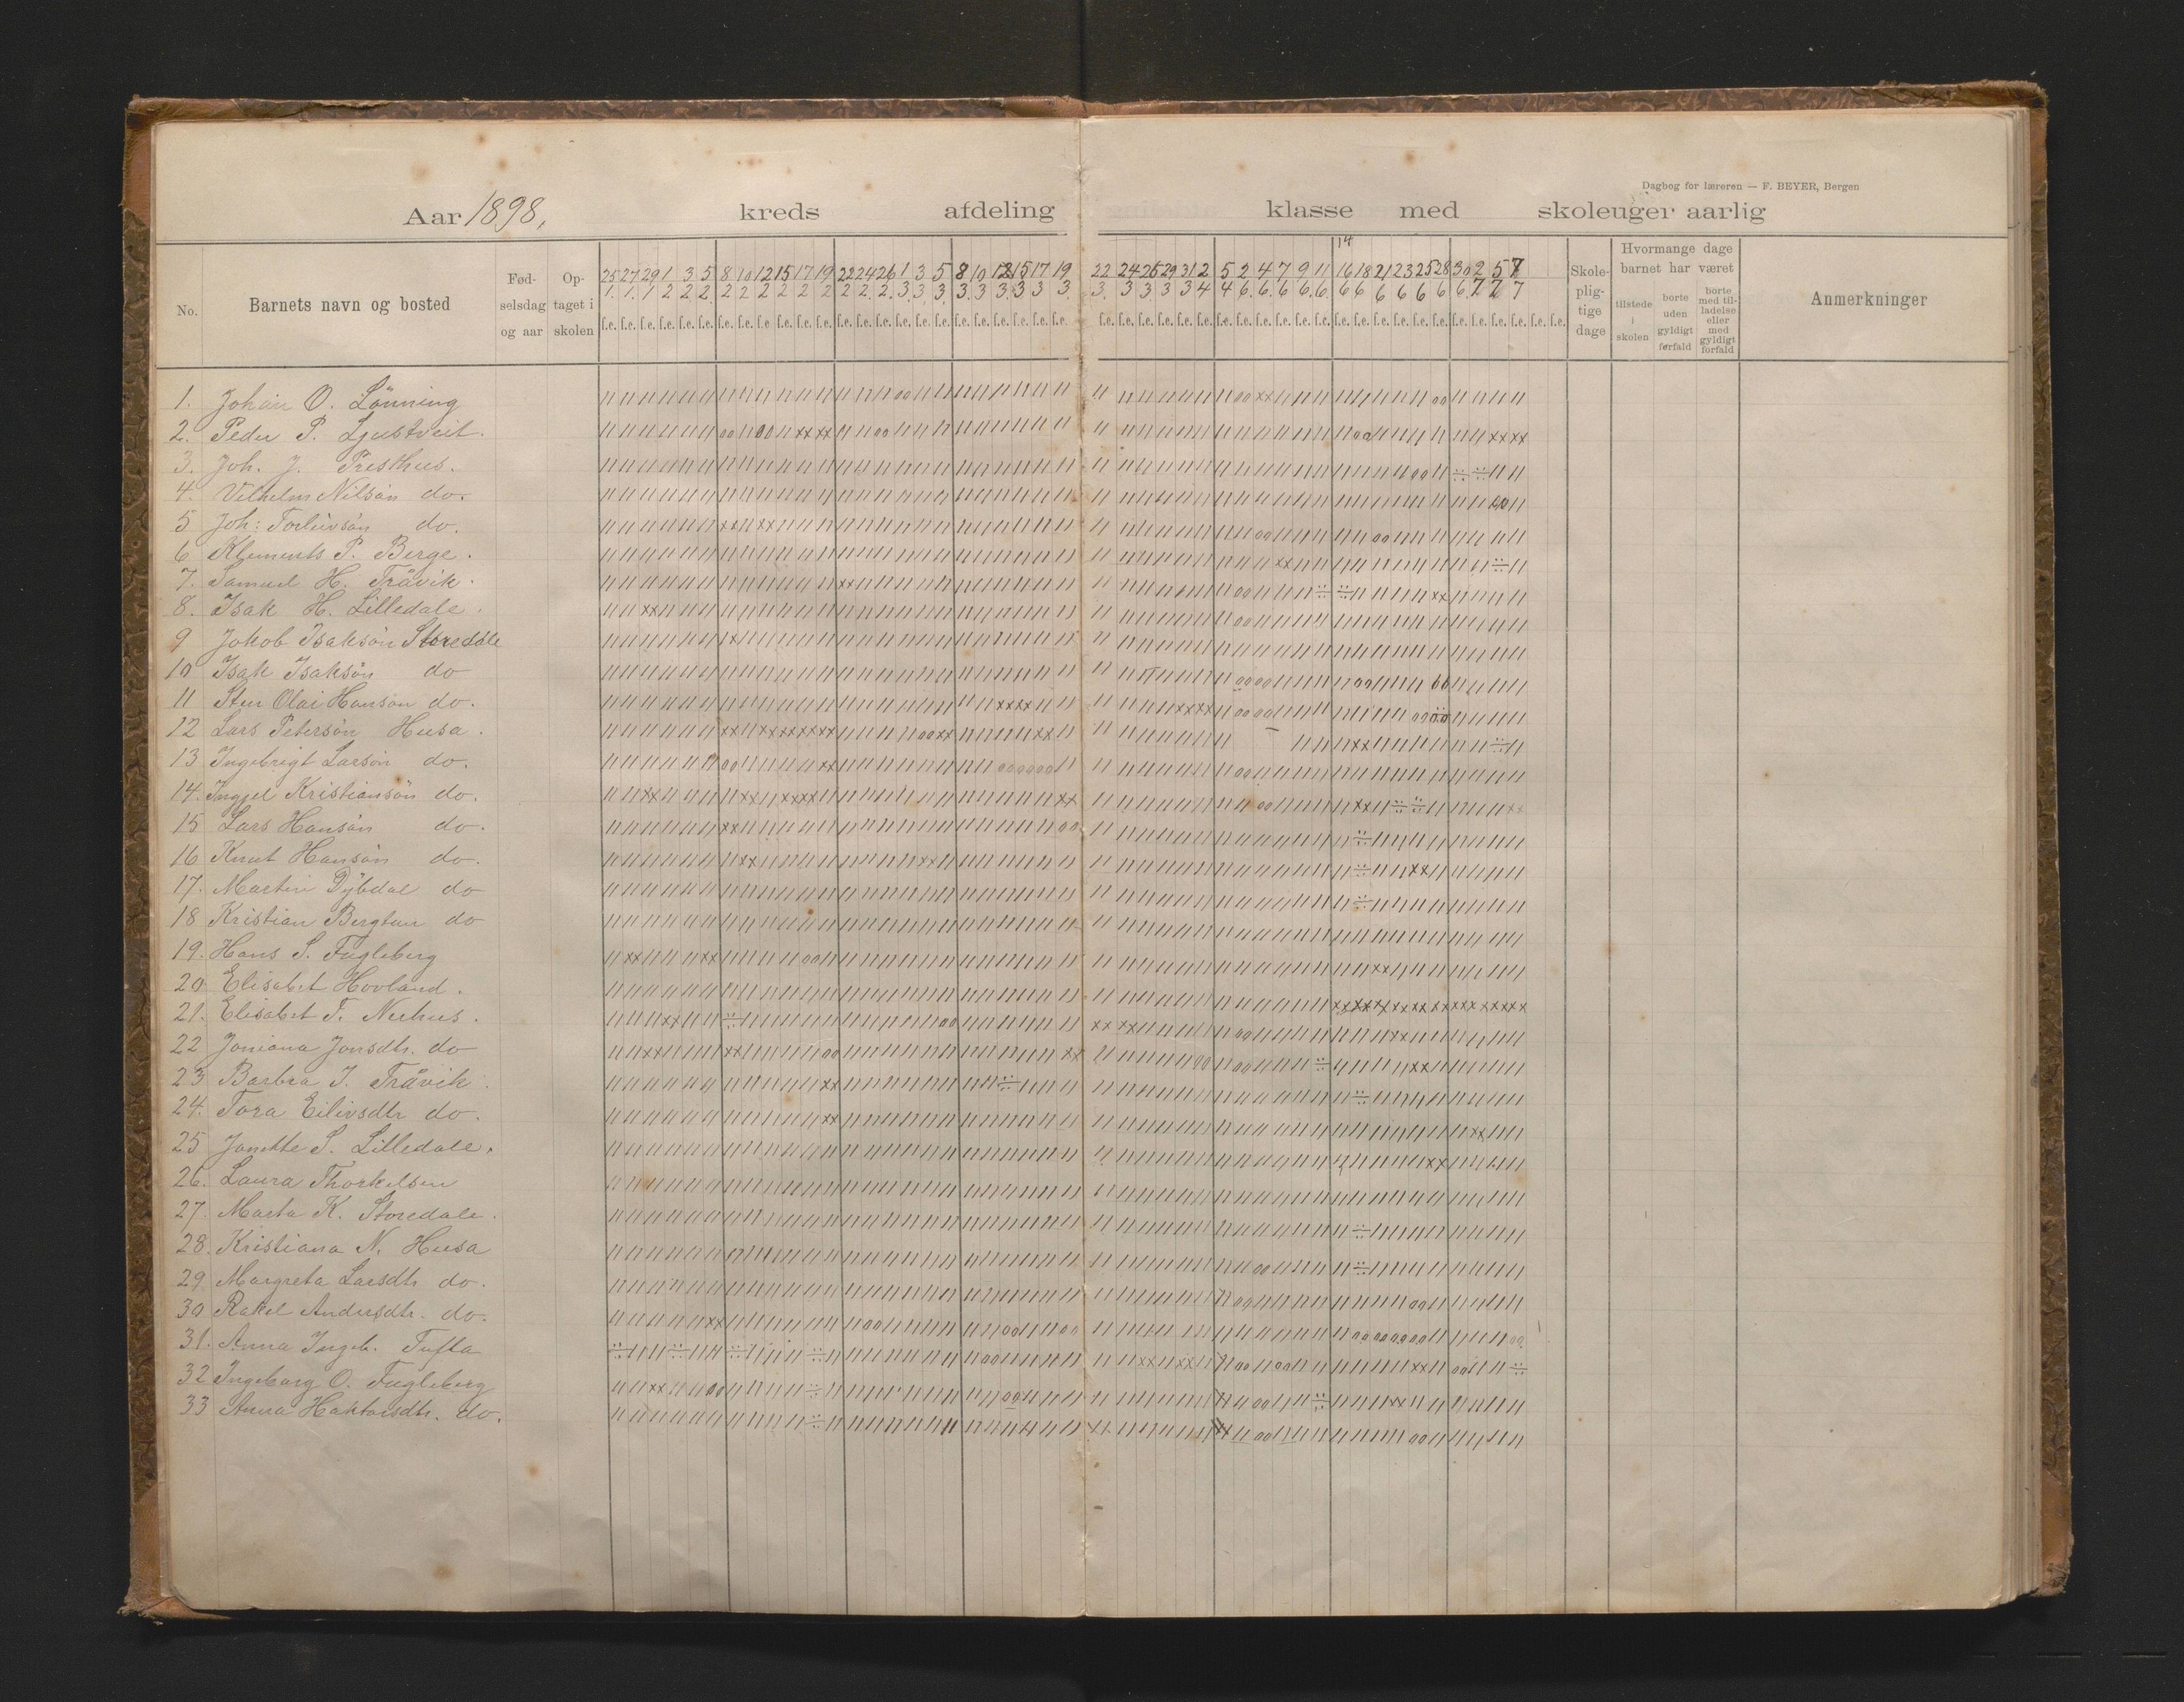 Dagbog for læreren — F. BEYER, Bergen
Aar 1898, kreds afdeling klasse med skoleuger aarlig
No. Barnets navn og bosted Fød-selsdag og aar Op-taget i skolen Skole-plig-tige dage Hvormange dage barnet har været tilstede i skolen borte uden gyldigt forfald borte med til-ladelse eller med gyldigt forfald Anmerkninger
25 27 29 1 3 5 8 10 12 15 17 19 22 24 26 1 3 5 8 10 12 15 17 19 22 24 26 29 31 2 5 2 4 7 9 11 14 16 18 21 23 25 28 30 2 5 7
1. 1. 1 2 2 2. 2 2 2 2 2 2 2 2. 2. 3. 3. 3. 3. 3 3. 3 3 3. 3. 3 3 3 3 4 4 6. 6. 6 6. 6. 6 6 6 6 6 6 6. 7 7 7
1. Johan O. Lönning
2. Peder P. Ljustveit.
3. Joh. J. Presthus.
4. Vilhelm Nilsön do.
5 Joh: Torleivsön do.
6. Klements P. Berge.
7. Samuel H. Tråvik.
8. Isak H. Lilledale.
9 Jakob Isaksön Storedale
10 Isak Isaksön do
11 Sten Olai Hansön do.
12 Lars Petersön Husa.
13 Ingebrigt Larsön do.
14. Kristiansön do.
15 Lars Hansön do.
16 Knut Hansön do.
17. Martin Dybdal do
18 Kristian Bergtun do
19. Hans S. Fugleberg
20 Elisabet Hovland.
21. Elisabet T. Nuhus.
22 Joniana Jonsdtr. do
23 Barbra J. Tråvik.
24. Tora Eilivsdtr do.
25 Jonette S. Lilledale.
26. Laura Thorkelsen
27. Marta K. Storedale.
28. Kristiana N. Husa
29. Margreta Larsdtr do.
30 Rakel Andersdtr. do.
31. Anna Ingeb. Tufta
32 Ingeborg O. Fugleberg
33 Anna Haktorsdtr. do.